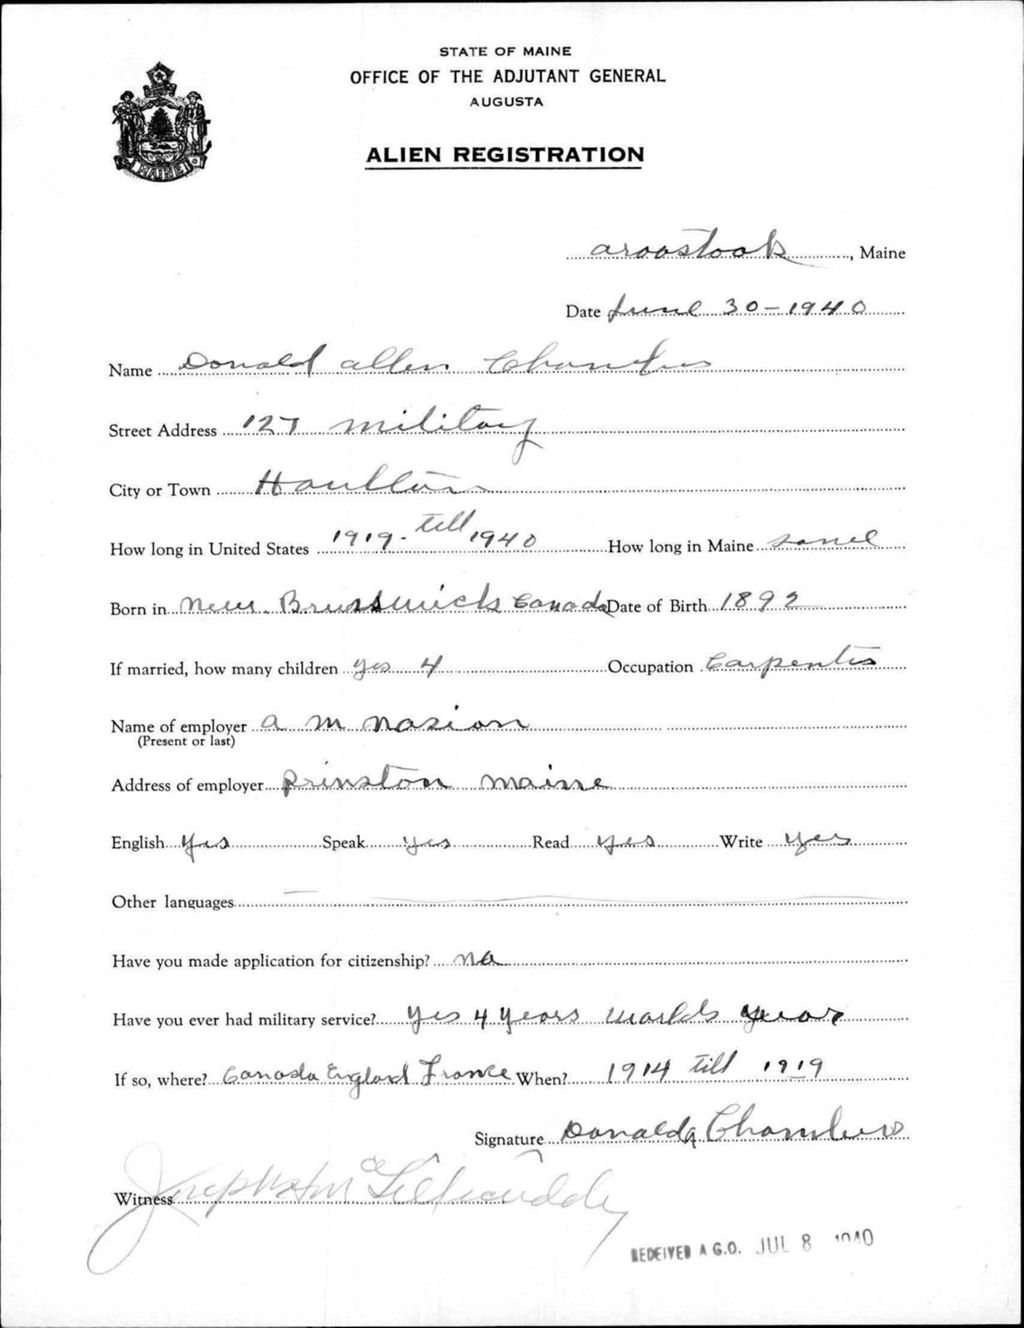 STATE OF MAINE
OFFICE OF THE ADJUTANT GENERAL
AUGUSTA
ALIEN REGISTRATION
MAINE
aroostook, Maine
Date June 30-1940
Name Donald allen Chambers
Street Address 127 military
City or Town Houlton
How long in United States 1919- till 1940 How long in Maine same
Born in New Brusswick Canada Date of Birth 1892
If married, how many children yes 4 Occupation Carpenter
Name of employer a m nasion
(Present or last)
Address of employer Prinston maine
English yes Speak yes Read yes Write yes
Other languages —
Have you made application for citizenship? no
Have you ever had military service? yes 4 years worlds
If so, where? Canada England France When? 1914 till 1919
Signature Donald a Chambers
Witness
RECEIVED A.G.O. JUL 8 1940